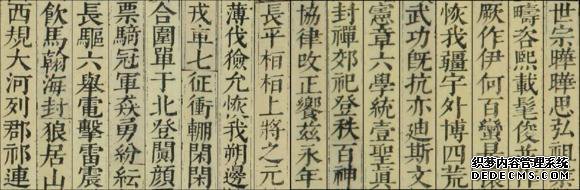 世宗曄曄思弘祖
疇咨熙載髦俊並
厥作伊何百蠻是
恢我疆宇外博四荒
武功既抗亦迪斯文
憲章六學統壹聖真
封禪郊祀登秩百神
協律改正饗茲永年
長平桓桓上將之元
薄伐獫允恢我朔邊
戎車七征衝輣閑閑
合圍單于北登闐顏
票騎冠軍猋勇紛紜
長驅六舉電擊雷震
飲馬翰海封狼居山
西規大河列郡祁連
织梦内容管理系统
DEDECMS.COM